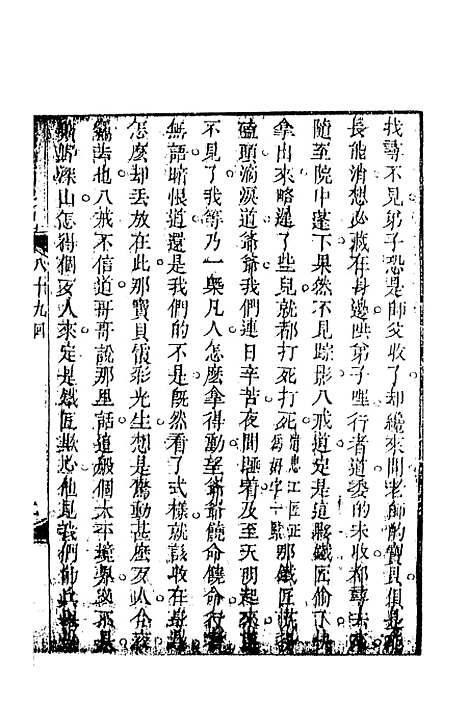 我尋不見弟子恐是師父收了却纔來問老師的寶貝俱是能
長能消想必藏在身邊哄弟子哩行者道委的未收都尋去
隨至院中蓬下果然不見踪影八戒道定是這夥鐵匠偷了快
拿出來畧遲了些兒就都打死打死那鐵匠慌
磕頭滴淚道爺爺我們連日辛苦夜間睡着及至天明起來
不見了我等乃一槩凡人怎麽拿得動望爺爺饒命饒命行者
無語暗恨道還是我們的不是既然看了式樣就該收在
怎麽却丢放在此那寶貝霞彩光生想是驚動甚麽歹人今夜
竊去也八戒不信道哥哥說那里話這般個太平境界又不是
曠野深山怎得個歹人來定是鐵匠欺心他見我們的兵
八十九回